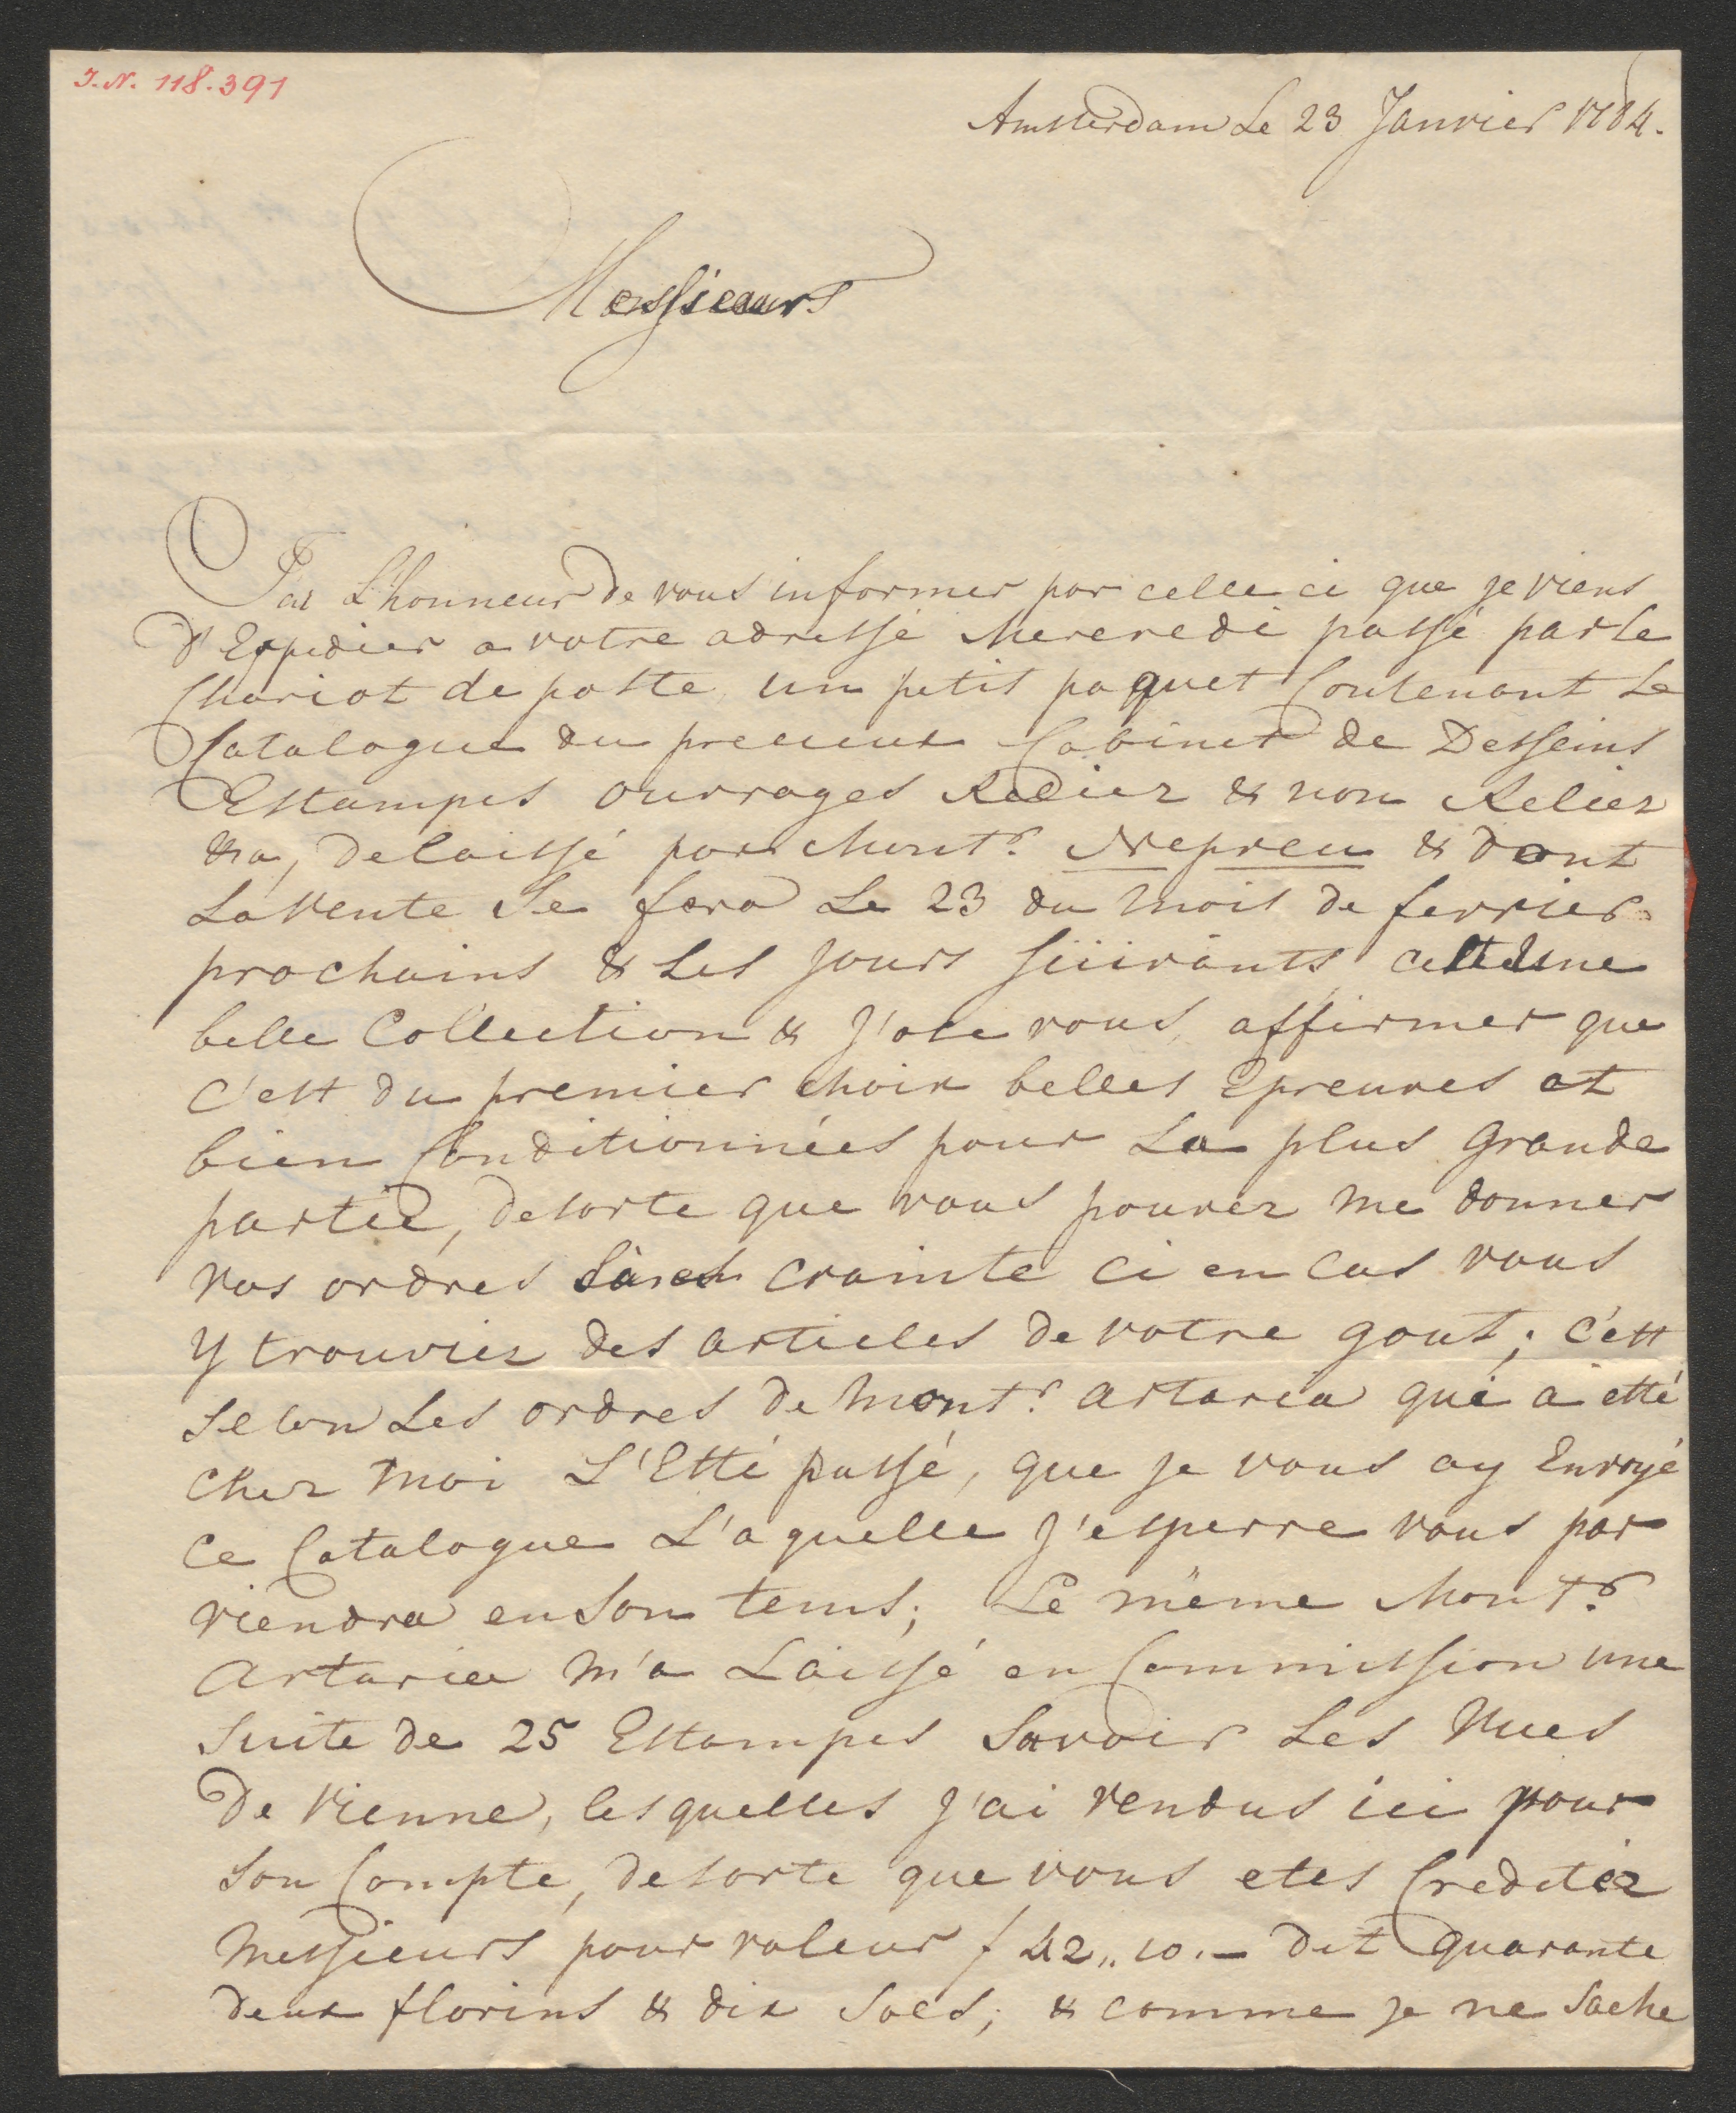 J.N. 118.391
Amsterdam Le 23 Janvier 1784.
Messieurs
J'ai L'honneur de vous informer par celle ci que je viens
d'Expedier a votre adresse Mercredi passé par le
Chariot de poste un petit paquet Contenant Le
Catalogue du precieux Cabinet de Desseins
Estampes ouvrages Reliez & non Reliez
&ca, delaissé par Monsr. Nepveu & dont
La Vente Se fera Le 23 du mois de fevrier
prochains & Les Jours Suivants, cest Une
belle Collection & J'ose vous affirmer que
c'est du premier choix belles Epreuves et
bien Conditionnées pour La plus Grande
partie, desorte que vous pouvez me donner
vos ordres Sans crainte ci en cas vous
y trouviez des articles de votre gout; c'est
selon Les ordres de Monsr. Artaria qui a etté
chez moi L'Etté passé, que je vous ay Envoyé
ce Catalogue L'aquelle J'esperre vous par
viendra en Son tems; Le même Monsr.
Artaria m'a Laissé en Commission une
Suite de 25 Estampes Savoir Les Vues
De Vienne, lesquelles J'ai Vendus ici pour
Son Compte, desorte que vous etes Creditéz
Messieurs pour valeur f 42,,10.- dit quarante
deux florins & dix Sols; & comme je ne Sache